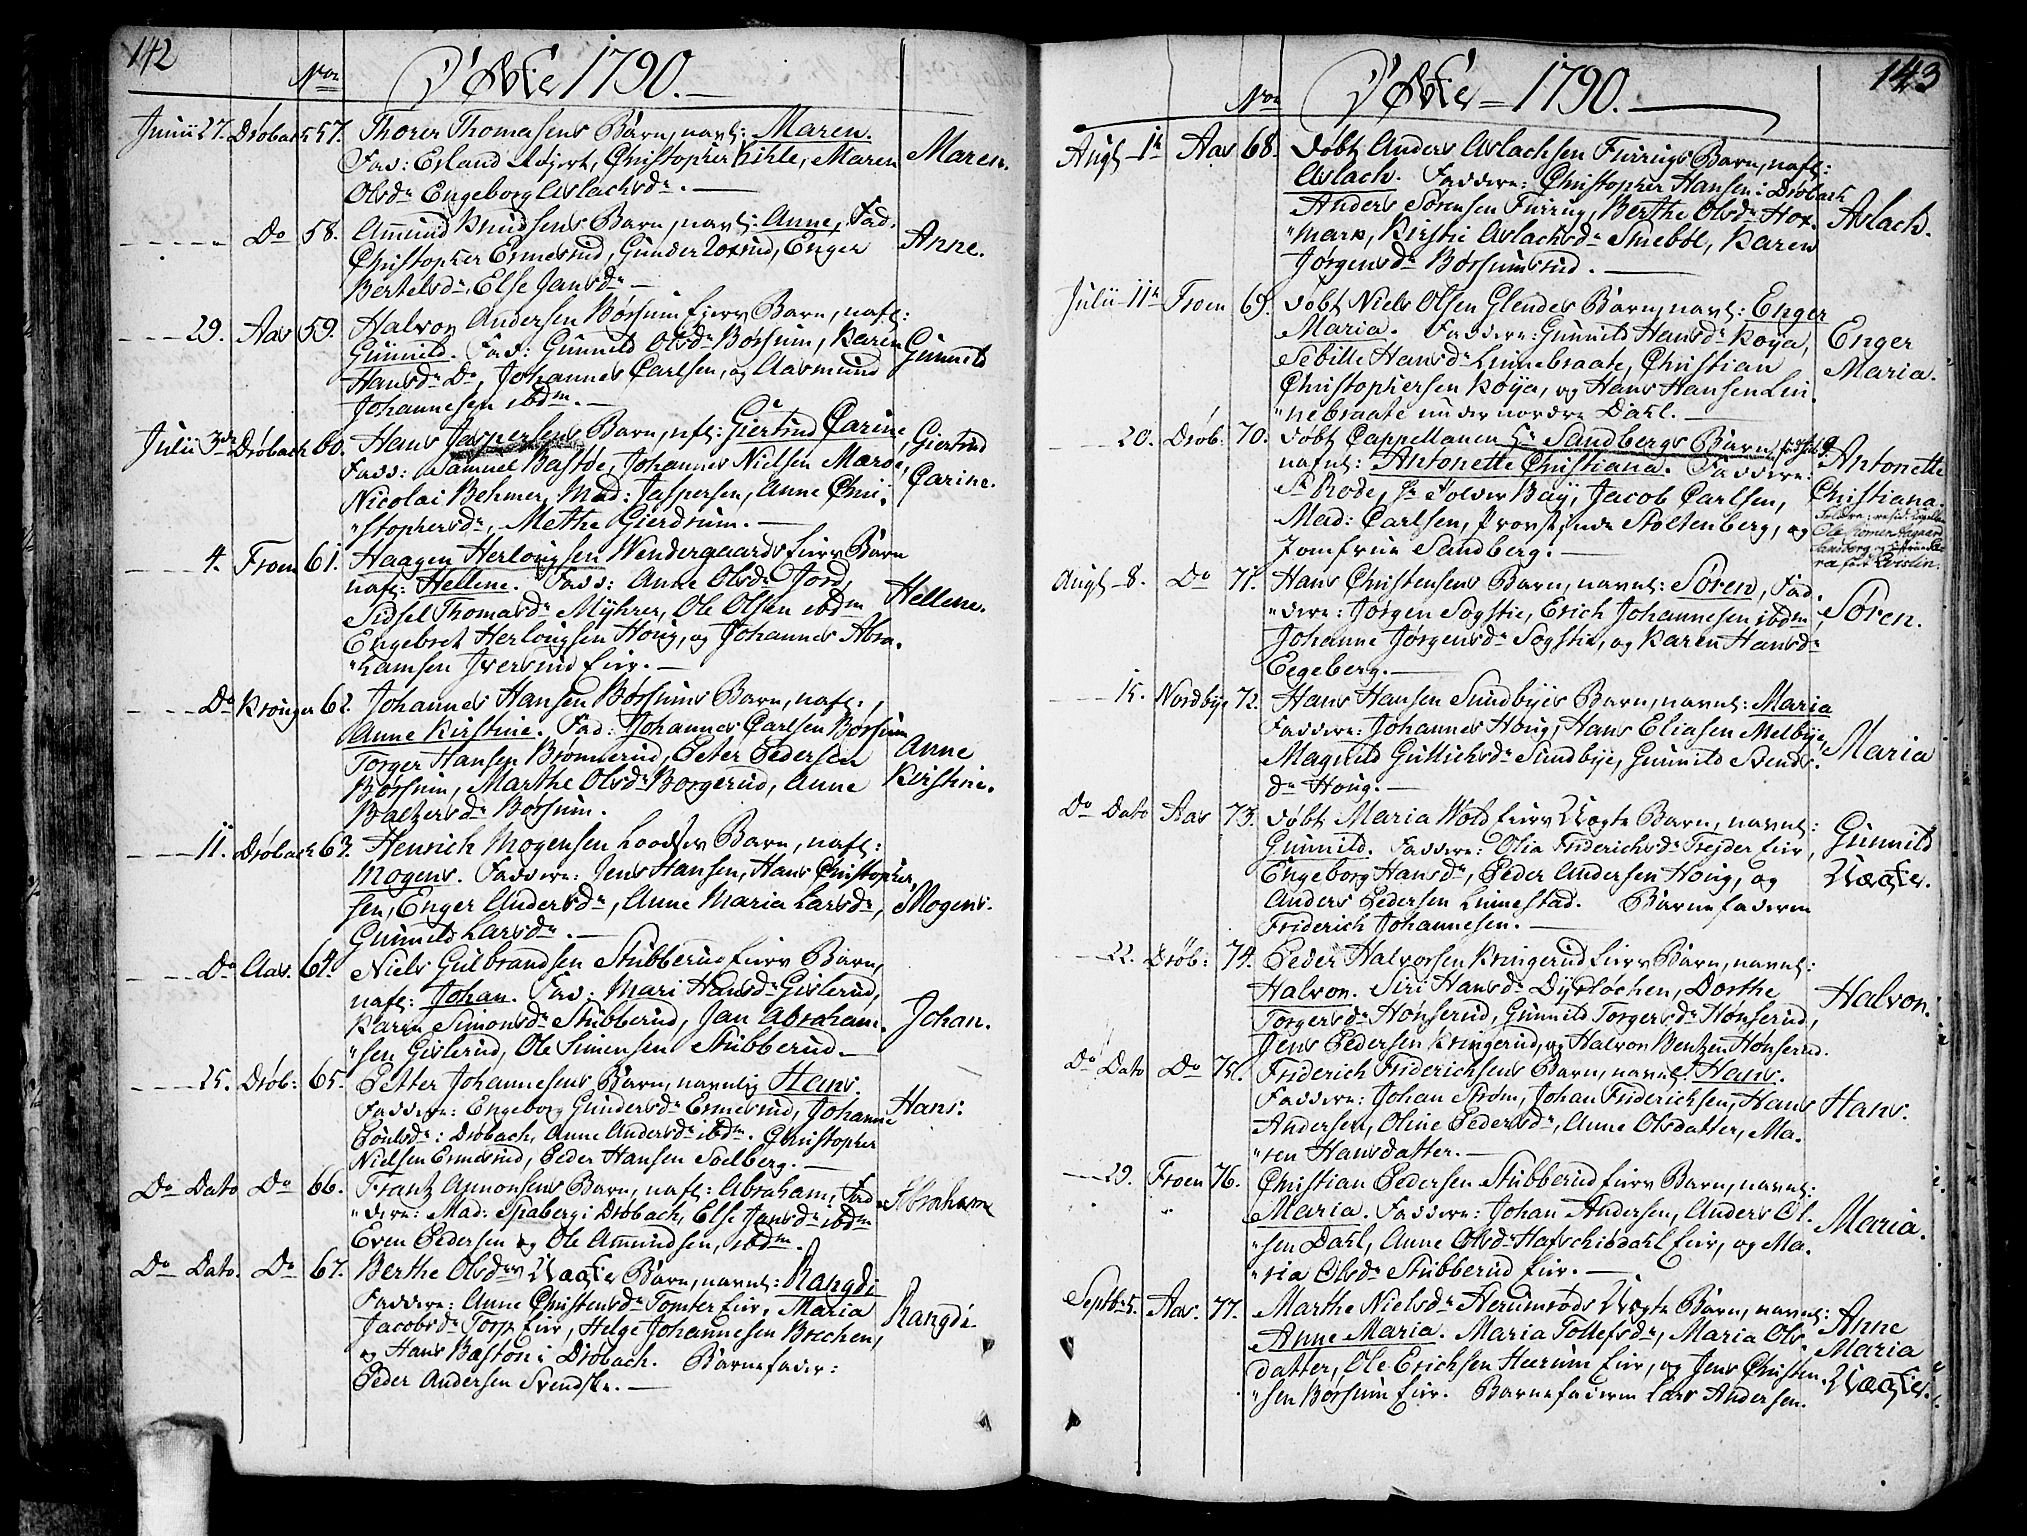 142
No
Døbte 1790.
Junii 27. Drøbach 57. Thorer Thomasens Barn, navl: Maren.
Fad: Erland Kjort, Christopher Kihle, Maren
Olsdr Engeborg Aslachsdr.
Maren.
Do 58. Amund Knudsens Barn, navl: Anne, Fad.
Christopher Ermesrud, Gunder Loxrud, Enger
Bertelsdr, Else Jansdr
Anne.
29. Aas 59. Halvor Andersen Børsum Eier Barn, nafl:
Gunnild. Fad: Gunnild Olsdr Børsum, Karen
Hansdr Do, Johannes Carlsen, og Aasmund
Johannesen ibdm.
Gunnild
Julii 3die Drøbach 60. Hans Jaspersens Barn, nfl: Giertrud Carine
Fadd: Samuel Bastøe, Johannes Nielsen Marøe,
Nicolai Behmer, Mad: Jaspersen, Anne Chri-
"stophersdr, Methe Gierdrum.
Giertrud
Carine.
4. Froen 61. Haagen Herlougsen Wendergaards Eier Barn
nafl: Hellene. Fadd: Anne Olsdr Jord,
Sidsel Thomasdr Myhrer, Ole Olsen ibdm
Engebret Herlougsen Houg, og Johannes Abra-
"hamsen Iversrud Eier.
Hellene.
Do Kronger 62. Johannes Hansen Børsums Barn, nafl:,
Anne Kirstine. Fad: Johannes Carlsen Børsum
Torger Hansen Brønnerud, Peter Pedersen
Børsum, Marthe Olsdr Borgerud, Anne
Baltzersdr Børsum.
Anne
Kirstine.
11. Drøbach 63. Henrich Mogensen Lodser Barn, nafl:
Mogens. Faddere: Jens Hansen, Hans Christopher
sen, Enger Andersdr, Anne Maria Larsdr,
Gunnild Larsdr.
Mogens.
Do Aas. 64. Niels Gulbrandsen Stubberud Eier Barn,
nafl: Johan. Fad: Mari Hansdr Gislerud,
Karen Simonsdr Stubberud, Jan Abraham-
"sen Gislerud, Ole Simensen Stubberud
Johan.
25. Drøb: 65. Petter Johannesens Barn, navnlig Hans.
Faddere: Engeborg Gundersdr Ermesrud, Johanne
Poulsdr i Drøbach, Anne Andersdr ibdm. Christopher
Nielsen Ermesrud, Peder Hansen Solberg.
Hans.
Do Dato Do 66. Frantz Amonsens Barn, nafl: Abraham, Fad
"dere: Mad: Spaberg i Drøbach, Else Jansdr ibdm
Even Pedersen og Ole Amundsen, ibdm.
Abraham
Do Dato. Do 67. Berthe Olsdrs Uægte Barn, navnl: Rangdi
Faddere: Anne Christensdr Tomter Eier, Maria
Jacobsdr Torp Eier, Helge Johannesen Brechen,
og Hans Baston i Drøbach. Barnefader:
Peder Andersen Svendske.
Rangdi
143
No
Døbte 1790.
Augt 1te Aas 68. Døbt Anders Aslachsen Furrugs Barn, nafl:
Aslach. Faddere: Christopher Hansen i Drøbach
Anders Sørensen Furrug, Berthe Olsdr Hox-
"mark, Kirstie Aslachsdr Smebøl, Karen
Jørgensdr Børsumsrud.
Aslach.
Julii 11te Froen 69. Døbt Niels Olsen Glendes Barn, navnl: Enger
Maria. Faddere: Gunnild Hansdr Køya,
Sebille Hansdr Linnebraate, Christian
Christophersen Køya, og Hans Hansen Lin-
"nebraate under nordre Dahl.
Enger
Maria.
20. Drøb: 70. Døbt Cappellanen Hr Sandbergs Barn
nafnl: Antonette Christiana. Faddere:
Hr Rode, Hr Tolder Bay, Jacob Carlsen,
Mad: Carlsen, Provstinde Stoltenberg, og
Jomfrue Sandberg.
Antonette
Christiana.
Augt 8. Do 71. Hans Christensens Barn, navnl: Søren, Fad-
"dere: Jørgen Sogstie, Erich Johannesen ibdm
Johanne Jørgensdr Sogstie, og Karen Hansdr
Eegeberg.
Søren.
15. Nordbye 72. Hans Hansen Sundbyes Barn, navnl: Maria
Faddere: Johannes Houg, Hans Eliasen Melbye,
Magnild Guttichsdr Sundbye, Gunnild Svends-
dr Houg.
Maria
Do Dato Aas 73. Døbt Maria Wold Eier Uægte Barn, navnl:
Gunnild. Faddere: Olia Friderichsdr Frejder Eier
Engeborg Hansdr, Peder Andersen Houg, og
Anders Pedersen Linnestad. Barnefaderen
Friderich Johannesen.
Gunnild
Uægte.
22. Drøb: 74. Peder Halvorsen Kringerud Eier Barn, navnl:
Halvon. Siri Hansdr Dyrløchen, Dorthe
Torgersdr Hønserud, Gunnild Torgersdr Hønserud,
Jens Pedersen Kringerud, og Halvon Bentzen Hønserud.
Halvon.
Do Dato Do 75. Friderich Friderichsens Barn, navnl. Hans.
Faddere: Johan Strøm, Johan Friderichsen, Hans
Andersen, Oline Pedersdr, Anne Olsdatter, Ma-
"ren Hansdatter.
Hans.
29. Froen 76. Christian Pedersen Stubberud Eier Barn, navnl:
Maria. Faddere: Johan Andersen, Anders Ol-
"sen Dahl, Anne Olsdr Hafschiødahl Eier, og Ma-
"ria Olsdr Stubberud Eier.
Maria.
Septbr 5. Aas. 77. Marthe Nielsdr Herumrøds Uægte Barn, navnl:
Anne Maria. Maria Tollefsdr, Maria Ols-
datter, Ole Erichsen Heerum Eier, og Jens Christen-
"sen Børsum Eier. Barnefaderen Lars Andersen.
Anne
Maria
Uægte.